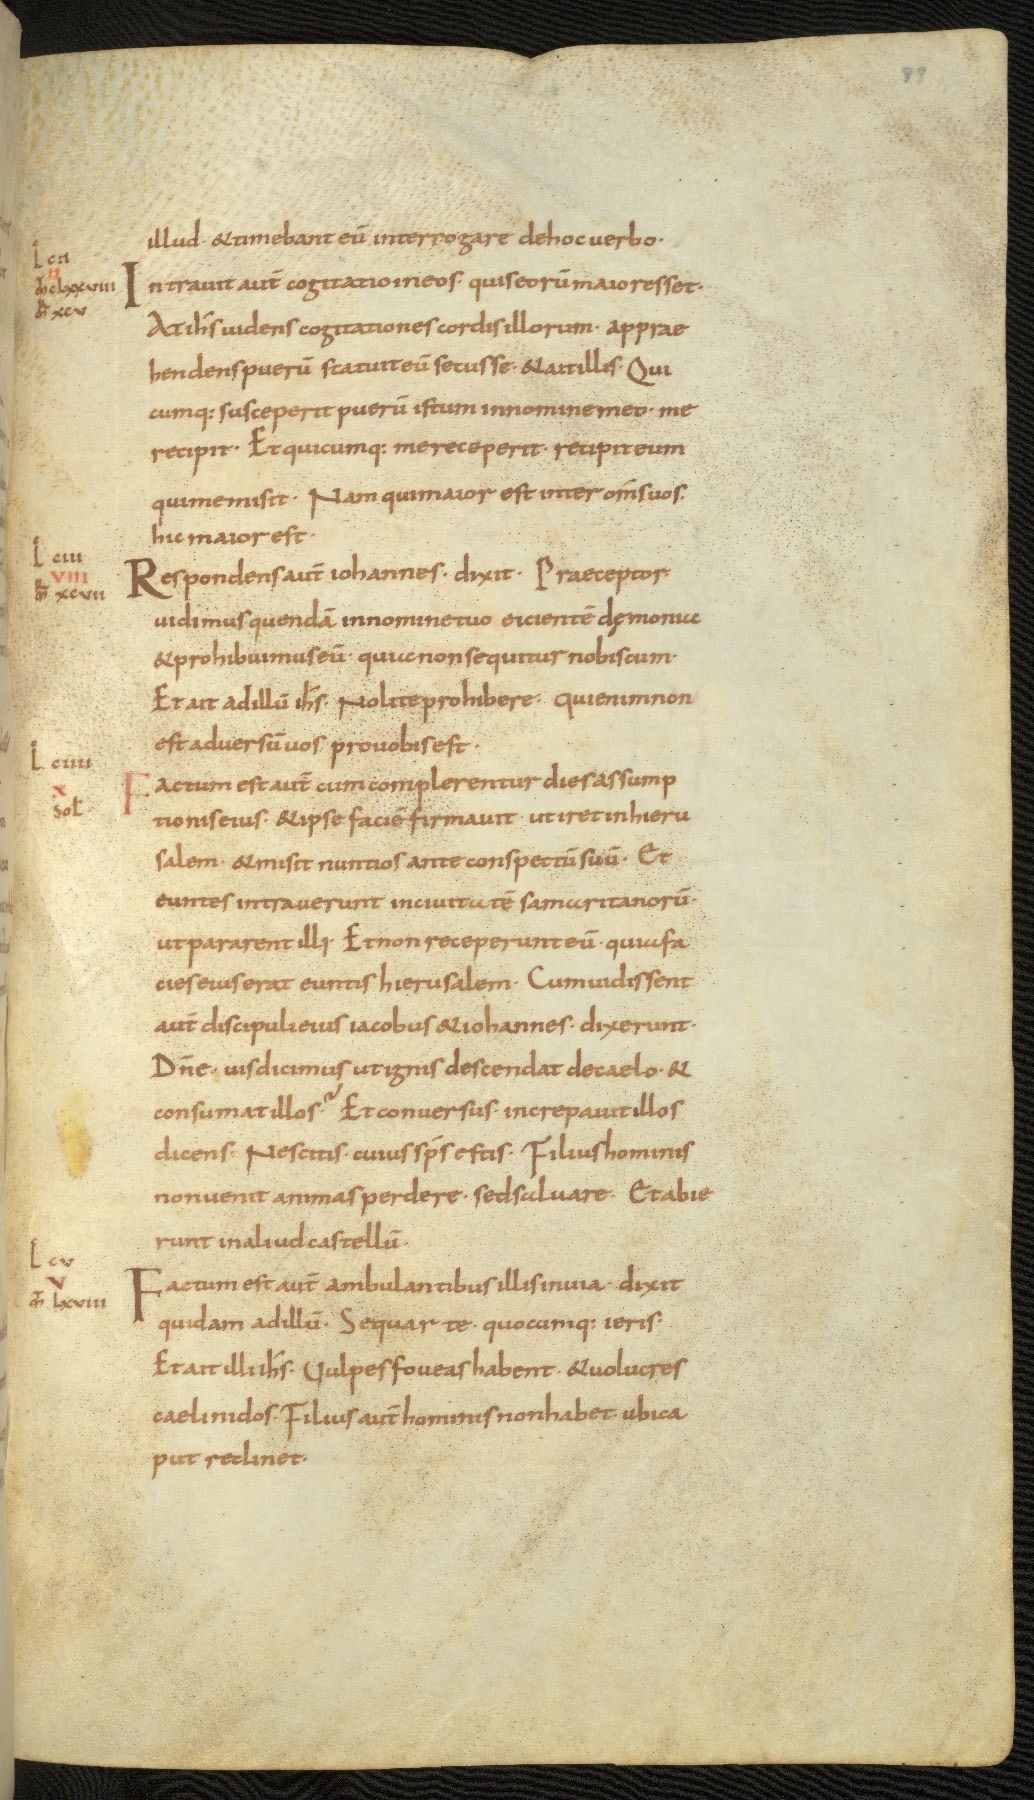 89
illud· &timebant eū interrogare dehocuerbo·
L cii
ii
m̄ clxxviii
m̄r xcv
Intrauit aut̄ cogitatio ineos· quis eorū maior esset·
At ih̄s uidens cogitationes cordis illorum· apprae
hendens puerū statuit eū secus se· &ait illis· Qui
cumq: susceperit puerū istum innomine meo· me
recipit· Et quicumq: me receperit· recipit eum
qui me misit· Nam qui maior est inter om̄s uos·
hic maior est·
L ciii
VIII
m̄r xcvii
Respondens aut̄ iohannes· dixit· Praeceptor
uidimus quendā innomine tuo eicientē dęmonia
&prohibuimus eū· quia non sequitur nobiscum·
Et ait ad illū ih̄s· Nolite prohibere· qui enim non
est aduersū uos pro uobis est·
L ciiii
x
Sol̄
Factum est aut̄ cum complerentur dies assump
tionis eius· &ipse faciē firmauit· ut iret in hieru
salem· &misit nuntios ante conspectū suū· Et
euntes intrauerunt inciuitatē samaritanorū·
ut pararent illi· Et non receperunt eū· quia fa
cies eius erat euntis hierusalem· Cum uidissent
aut̄ discipuli eius iacobus &iohannes· dixerunt·
Dn̄e· uis dicimus ut ignis descendat de caelo· &
consumat illos? Et conuersus· increpauit illos
dicens· Nescitis· cuius sp̄s estis· Filius hominis
non uenit animas perdere· sed saluare· Et abie
runt in aliud castellū·
L cv
v
m̄ lxviii
Factum est aut̄ ambulantibus illis in uia· dixit
quidam ad illū· Sequar te· quocumq: ieris·
Et ait illi ih̄s· Vulpes foueas habent· &uolucres
caeli nidos· Filius aut̄ hominis non habet ubi ca
put reclinet·